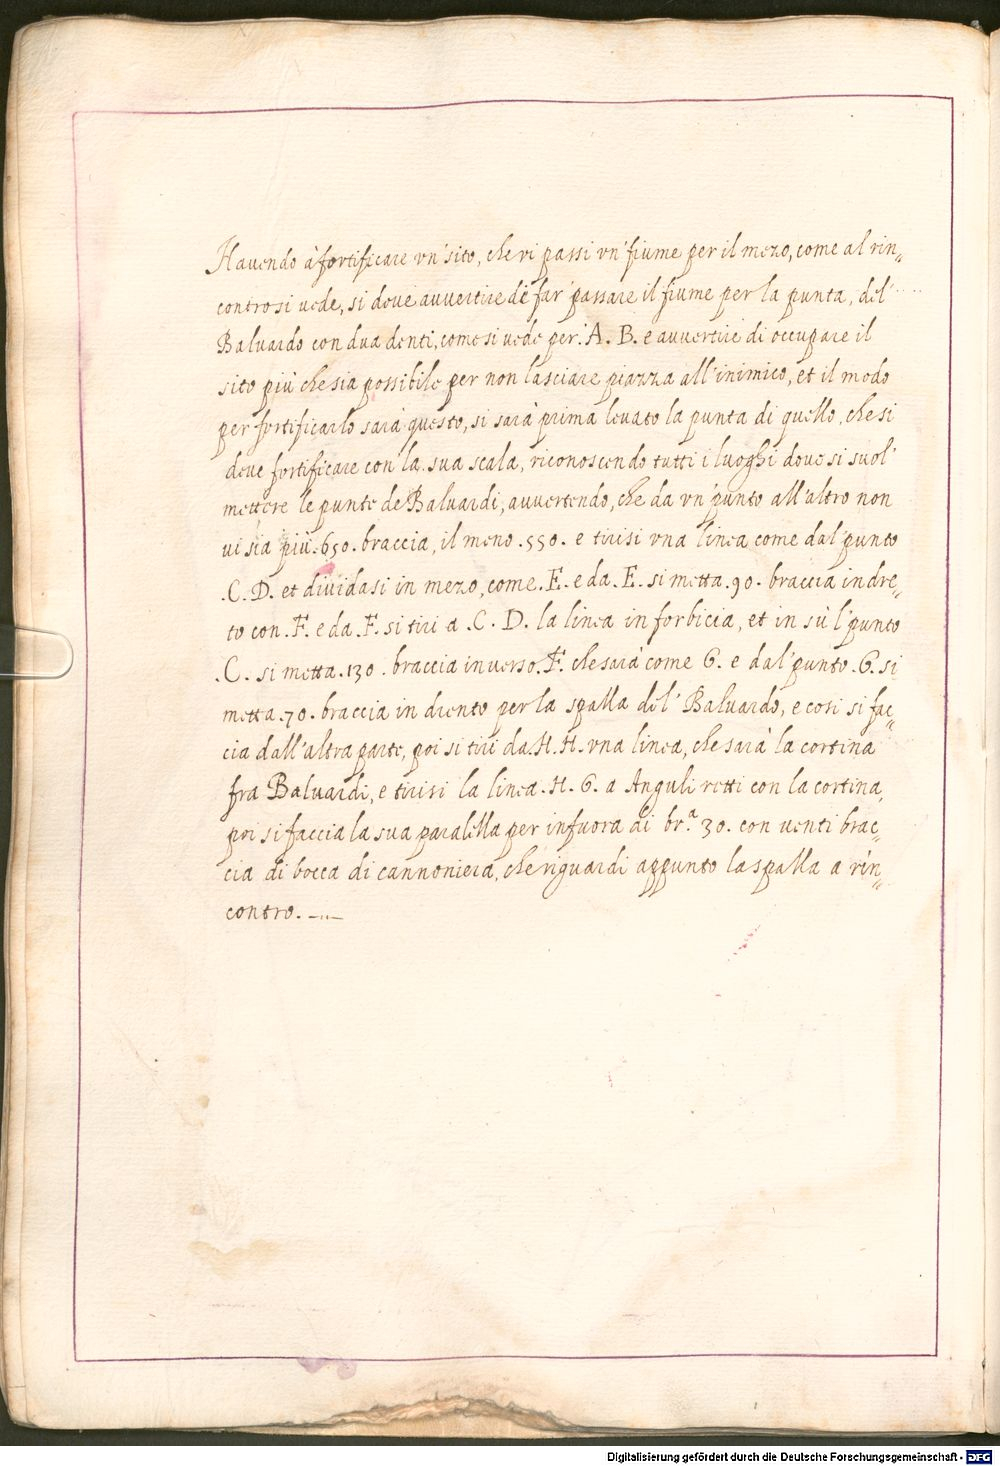 Havendo à fortificare vn' sito, che vi passi vn' fiume per il mezo, come al rin„
contro si uede, si deue auuertire di far' passare il fiume per la punta, del'
Baluardo con dua denti, come si uede per. A. B. e auuertire di occupare il
sito più che sia possibile per non lasciare piazza all'inimico, et il modo
per fortificarlo sarà questo, si sarà prima leuato la punta di quello, che si
deue fortificare con la sua scala, riconoscendo tutti i luoghi doue si suol'
mettere le punte de Baluardi, auuertendo, che da vn' punto all'altro non
ui sia più .650. braccia, il meno .550. e tirisi vna linea come dal' punto
.C. D. et diuidasi in mezo, come .E. e da .E. si metta .90. braccia indre„
to con .F. e da .F. si tiri a .C. D. la linea in forbicia, et in sù l' punto
.C. si metta .130. braccia in uerso .F. che sarà come G. e dal' punto .G. si
metta .70. braccia in drento per la spalla del' Baluardo, e cosi si fac„
cia dall'altra parte, poi si tiri da .H. H. vna linea, che sarà la cortina
fra Baluardi, e tirisi la linea .H. G. a Anguli retti con la cortina,
poi si faccia la sua paralella per infuora di br.ª 30. con uenti brac„
cia di bocca di cannoniera, che riguardi appunto la spalla a rin„
contro.
Digitalisierung gefördert durch die Deutsche Forschungsgemeinschaft - DFG